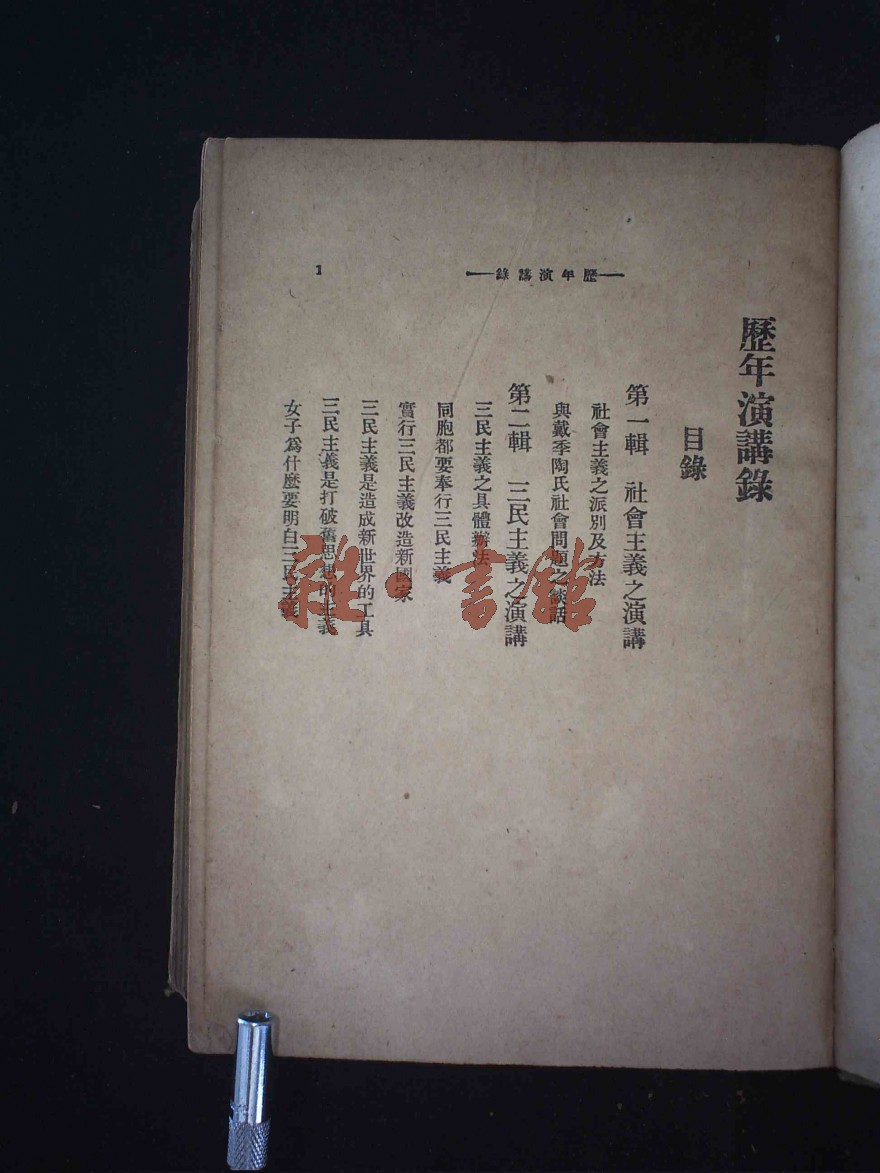 歷年演講錄
目錄
第一輯　社會主義之演講
社會主義之派別及方法
與戴季陶氏社會問題之談話
第二輯　三民主義之演講
三民主義之具體辦法
同胞都要奉行三民主義
實行三民主義改造新國家
三民主義是造成新世界的工具
三民主義是打破舊思想的主義
女子爲什麼要明白三民主義
歷年演講錄
1
雜·書館